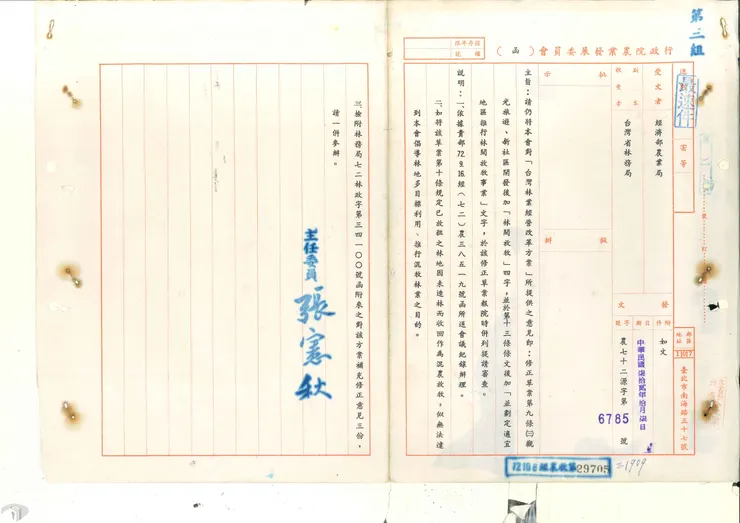 第三組
行政院農業發展委員會(函)
保存年限
檔號
最速件
密等
受文者
經濟部農業局
副本
收受者
台灣省林務局
批示
擬辦
發文
附件
如文
日期
中華民國柒拾貳年拾月柒日
字號
農七十二源字第 6785 號
郵區
10107
地址
臺北市南海路三十七號
主旨：請仍將本會對「台灣林業經營改革方案」所提供之意見即：修正草案第九條㈡觀
光旅遊、新社區開發後加「林間放牧」四字，並於第十三條條文後加「並劃定適宜
地區推行林間放牧事業」文字，於該修正草案報院時併列提請審查。
說明：一、依據貴部72.9.16.經(七二)農三八五一九號函所送會議紀錄辦理。
二、如符該草案第十條規定已放租之林地因未達林而收回作為混農放牧，似無法達
到本會倡導林地多目標利用、推行混牧林業之目的。
三、檢附林務局七二林政字第三四一〇〇號函附來之對該方案補充修正意見三份，
請一併參辦。
主任委員 張憲秋
72.10.8 經農收第29705